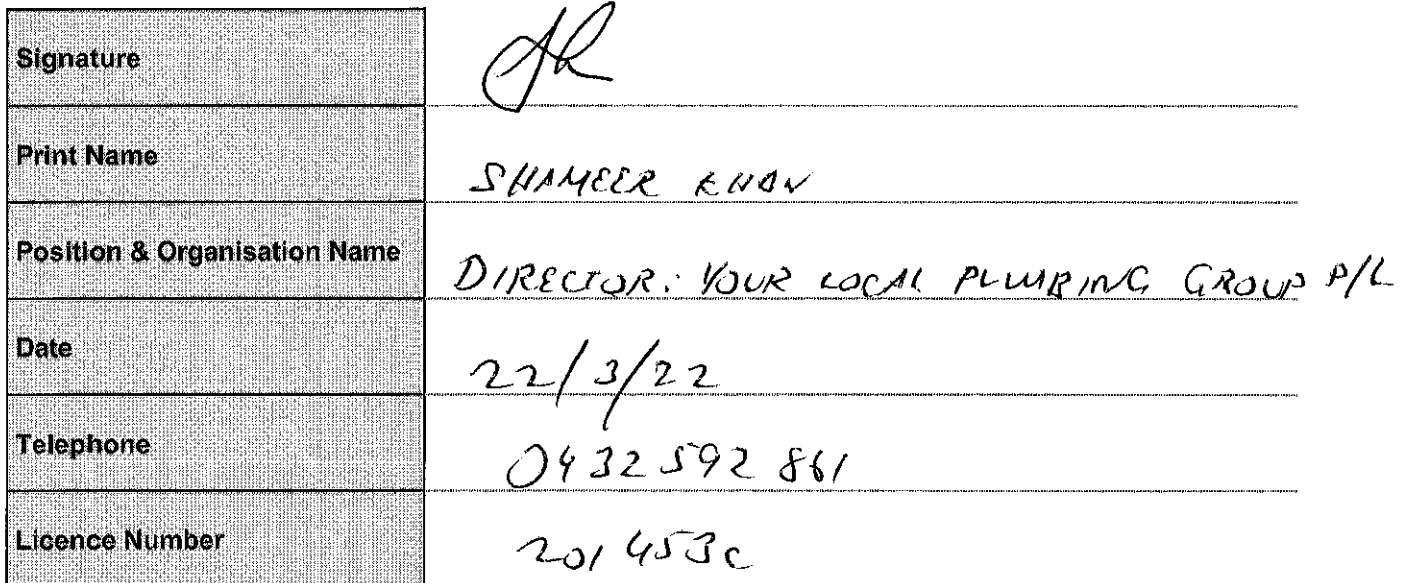 Signature
Print Name SHAMEER KHAN
Position & Organisation Name DIRECTOR: YOUR LOCAL PLUMBING GROUP P/L
Date 22/3/22
Telephone 0432 592 861
Licence Number 201453c